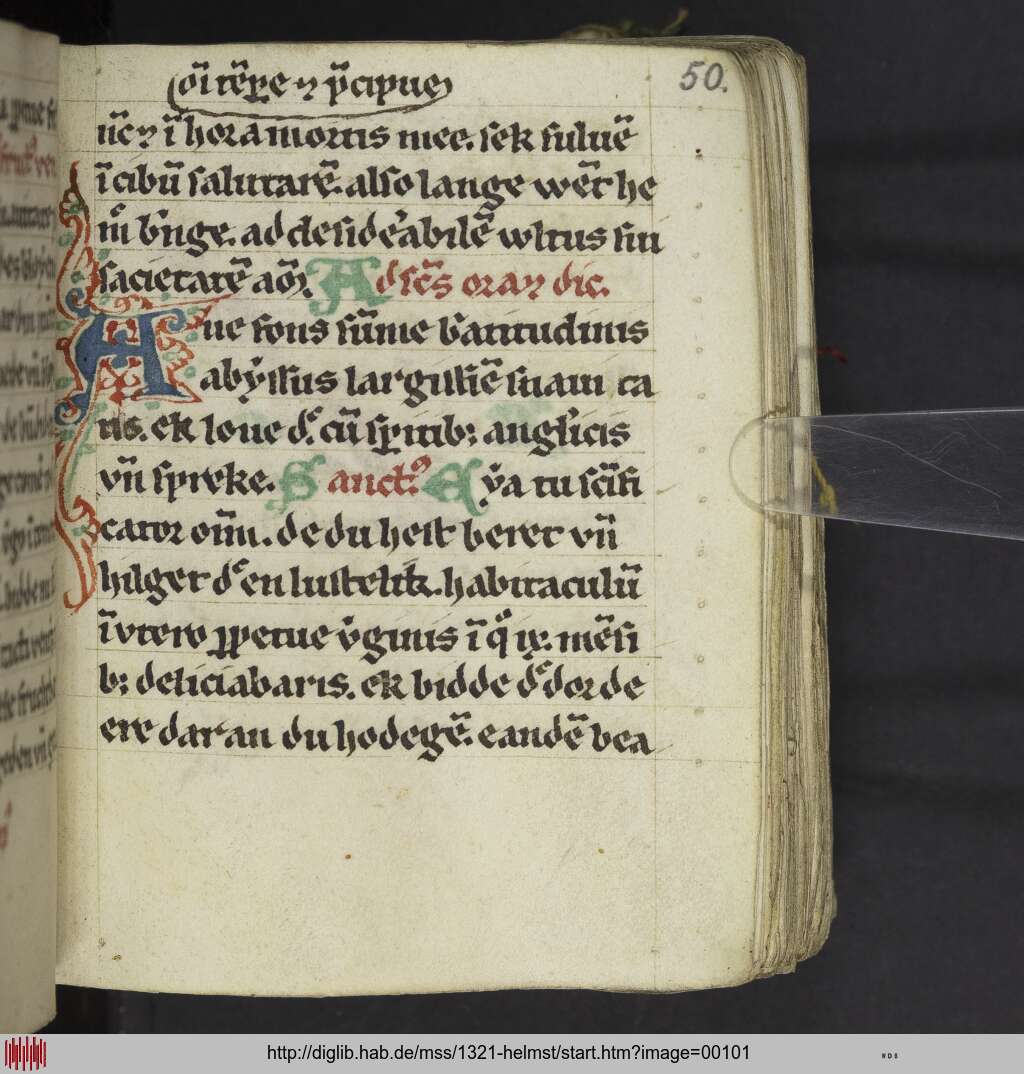 oı̄ tēꝑe ⁊ p̄cipue
50.
nc̄ ⁊ ī hora mortis mee. sek suluē
ī cibū salutarē. also lange wēt he
m̄ b'nge. ad desid'abilē wltus sui
sacietatē am̄. Ad sc̄s ora⁊ dic.
Aue fons sūme b'atitudinis
abẏssus largissiē suam ca
ris. ek loue dͤ. cū sp̄ritib; anglicis
vn̄ spreke. Sanctꝰ. Eẏa tu sc̄ifi
cator om̄. de du heist beret vn̄
hilger dͤ en lustelik. habitaculū
ī vtero ꝑpetue v̓ginis ī qͦ ix. mēsi
b; deliciabaris. ek bidde dͤ dor de
ere dar an du hodegē. eandē bea
http://diglib.hab.de/mss/1321-helmst/start.htm?image=00101